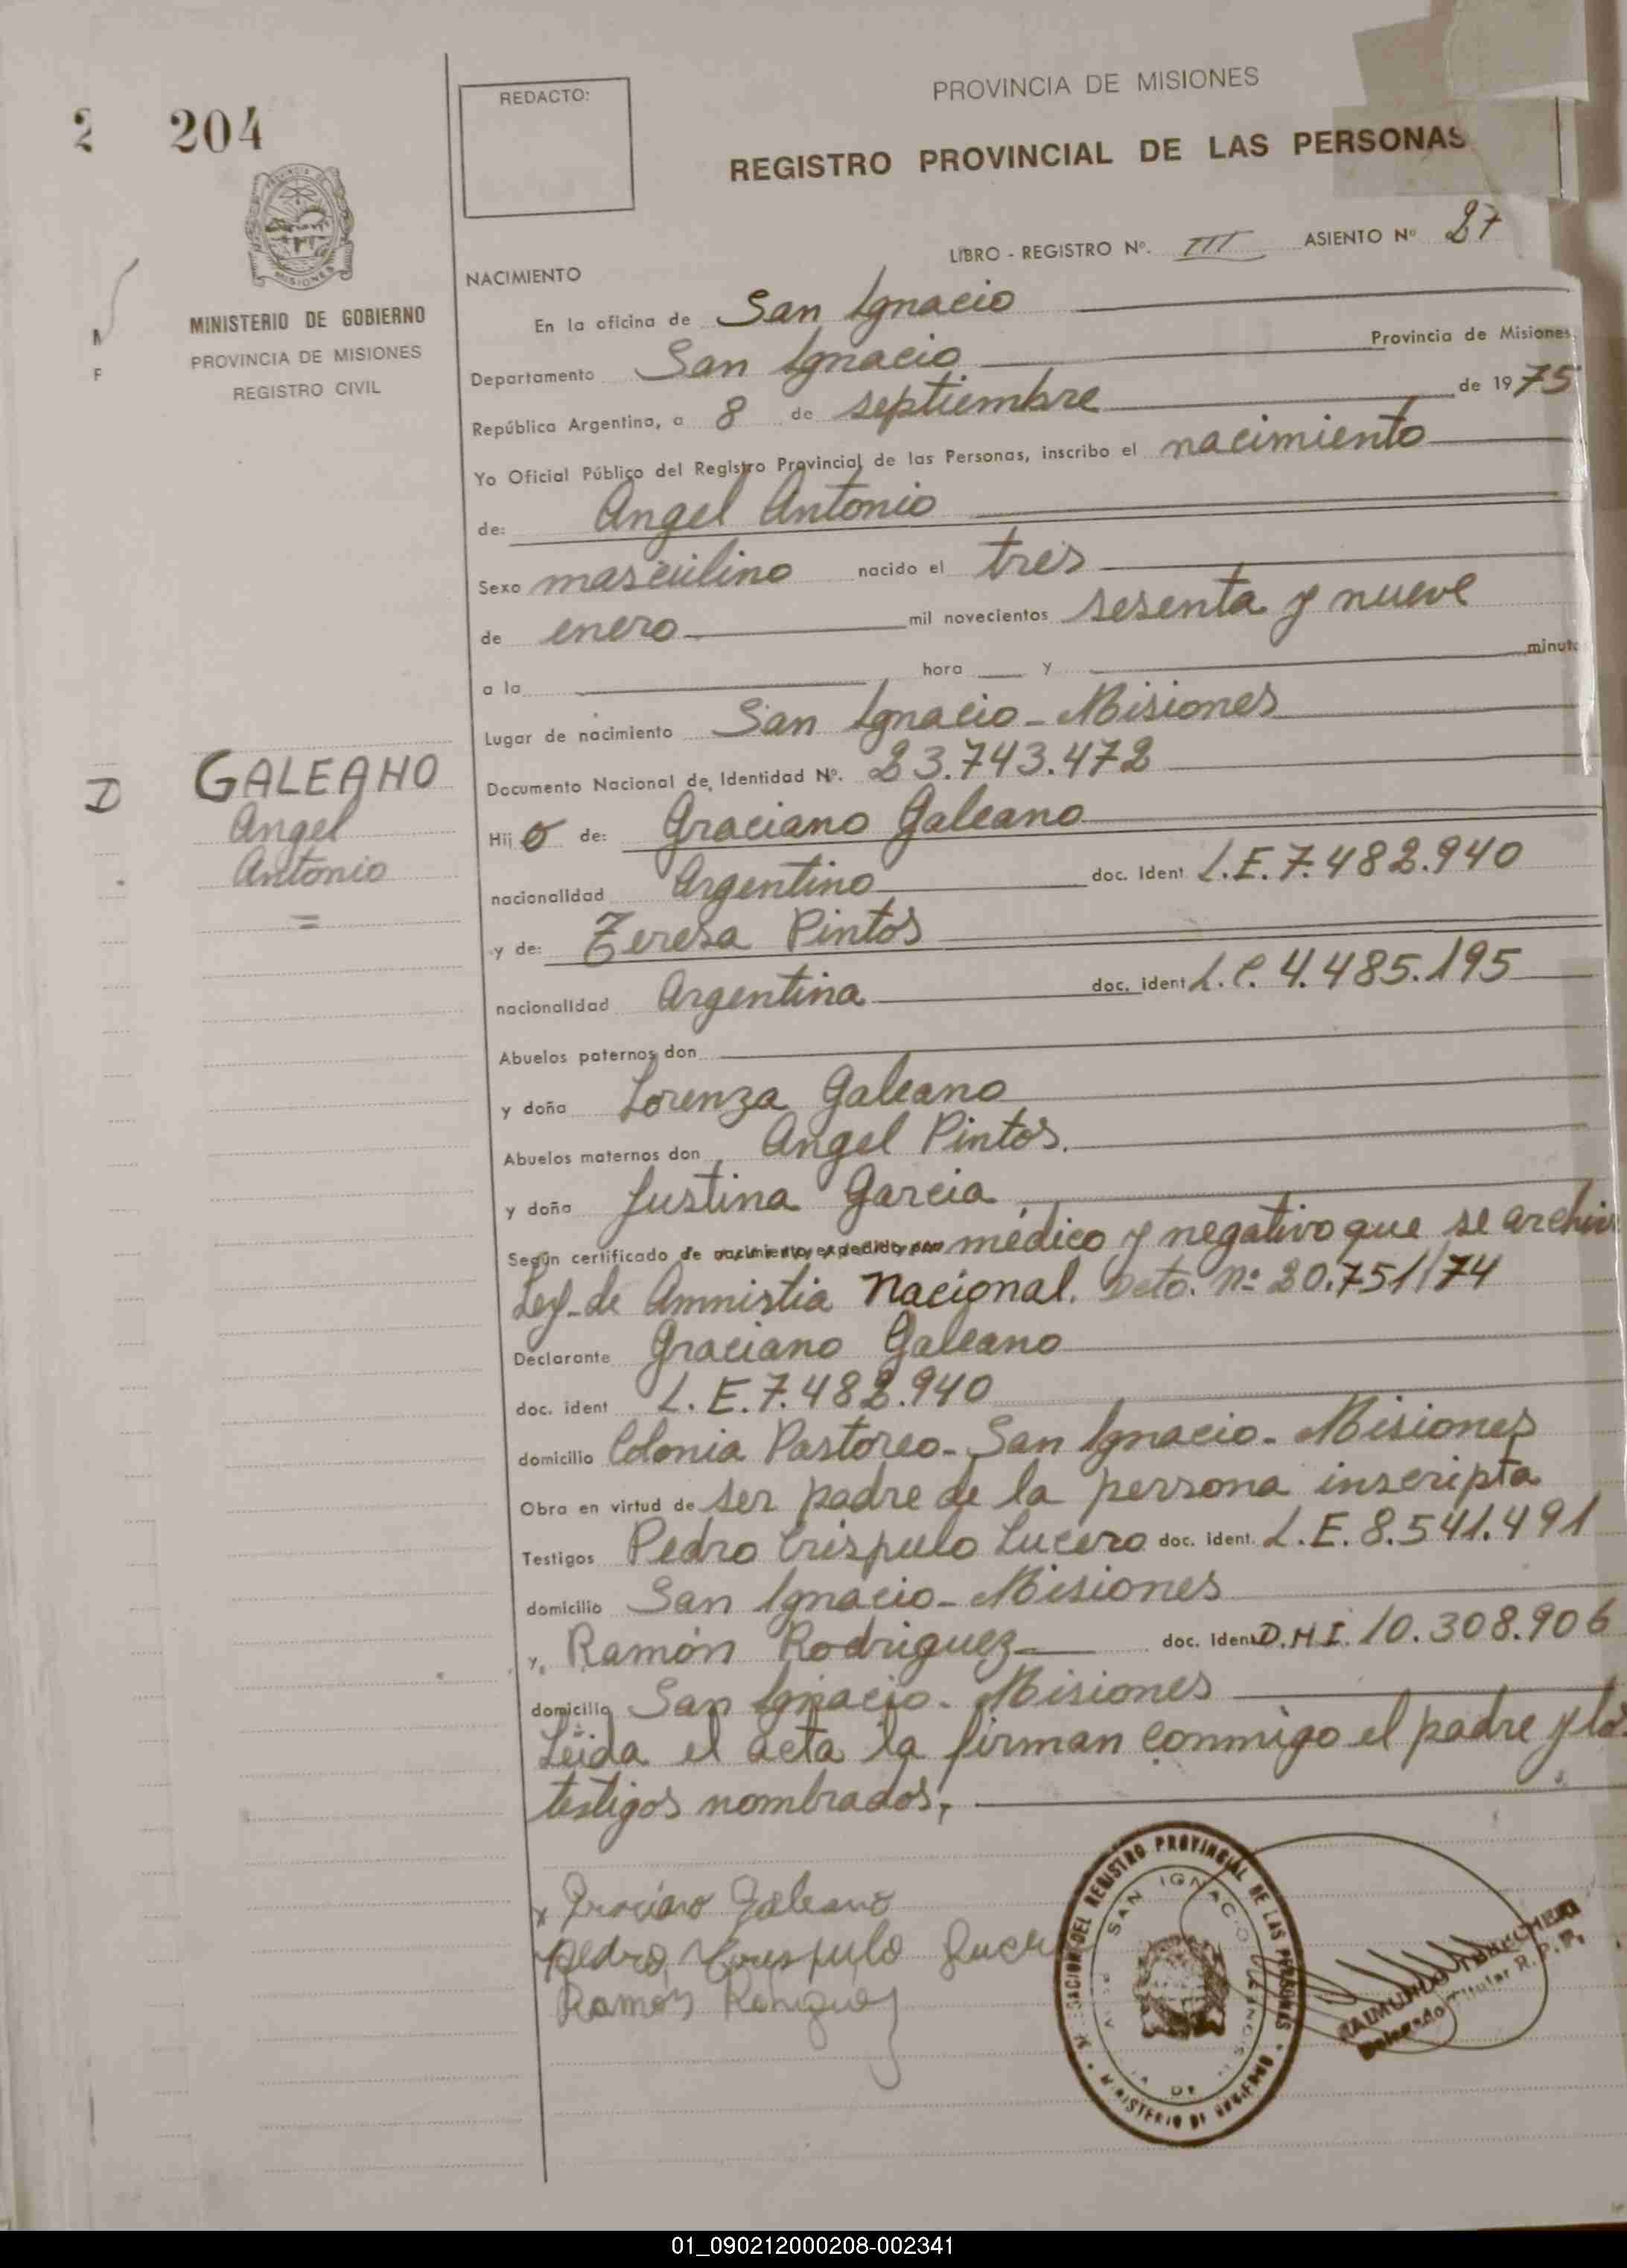 2 204
REDACTO:
PROVINCIA DE MISIONES
REGISTRO PROVINCIAL DE LAS PERSONAS
LIBRO - REGISTRO Nº. III ASIENTO Nº 27
NACIMIENTO
MINISTERIO DE GOBIERNO
PROVINCIA DE MISIONES
REGISTRO CIVIL
En la oficina de San Ignacio
Departamento San Ignacio Provincia de Misiones,
República Argentina, a 8 de septiembre de 1975
Yo Oficial Público del Registro Provincial de las Personas, inscribo el nacimiento
de: Angel Antonio
Sexo masculino nacido el tres
de enero mil novecientos sesenta y nueve
a la hora y minuto
Lugar de nacimiento San Ignacio - Misiones
Documento Nacional de Identidad Nº. 23.743.472
GALEANO
Angel
Antonio
Hijo de: Graciano Galeano
nacionalidad Argentino doc. Ident L.E. 7.482.940
y de: Teresa Pintos
nacionalidad Argentina doc. ident L.C. 4.485.195
Abuelos paternos don
y doña Lorenza Galeano
Abuelos maternos don Angel Pintos.
y doña Justina Garcia
Según certificado de nacimiento, expedido por médico y negativo que se archiv
Ley de Amnistia Nacional. Dcto. Nº 20.751/74
Declarante Graciano Galeano
doc. ident L.E. 7.482.940
domicilio Colonia Pastoreo - San Ignacio - Misiones
Obra en virtud de ser padre de la persona inscripta
Testigos Pedro Crispulo Lucero doc. ident. L.E. 8.541.491
domicilio San Ignacio - Misiones
y, Ramón Rodriguez doc. ident D.N.I. 10.308.906
domicilio San Ignacio - Misiones
Leida el acta la firman conmigo el padre y los
testigos nombrados.
x Graciano Galeano
Pedro Crespulo Lucero
Ramon
DEL REGISTRO PROVINCIAL DE LAS PERSONAS
SAN IGNACIO
DE MISIONES
MINISTERIO DE GOBIERNO
RAIMUNDO
Delegado Titular R.P.P.
01_090212000208-002341